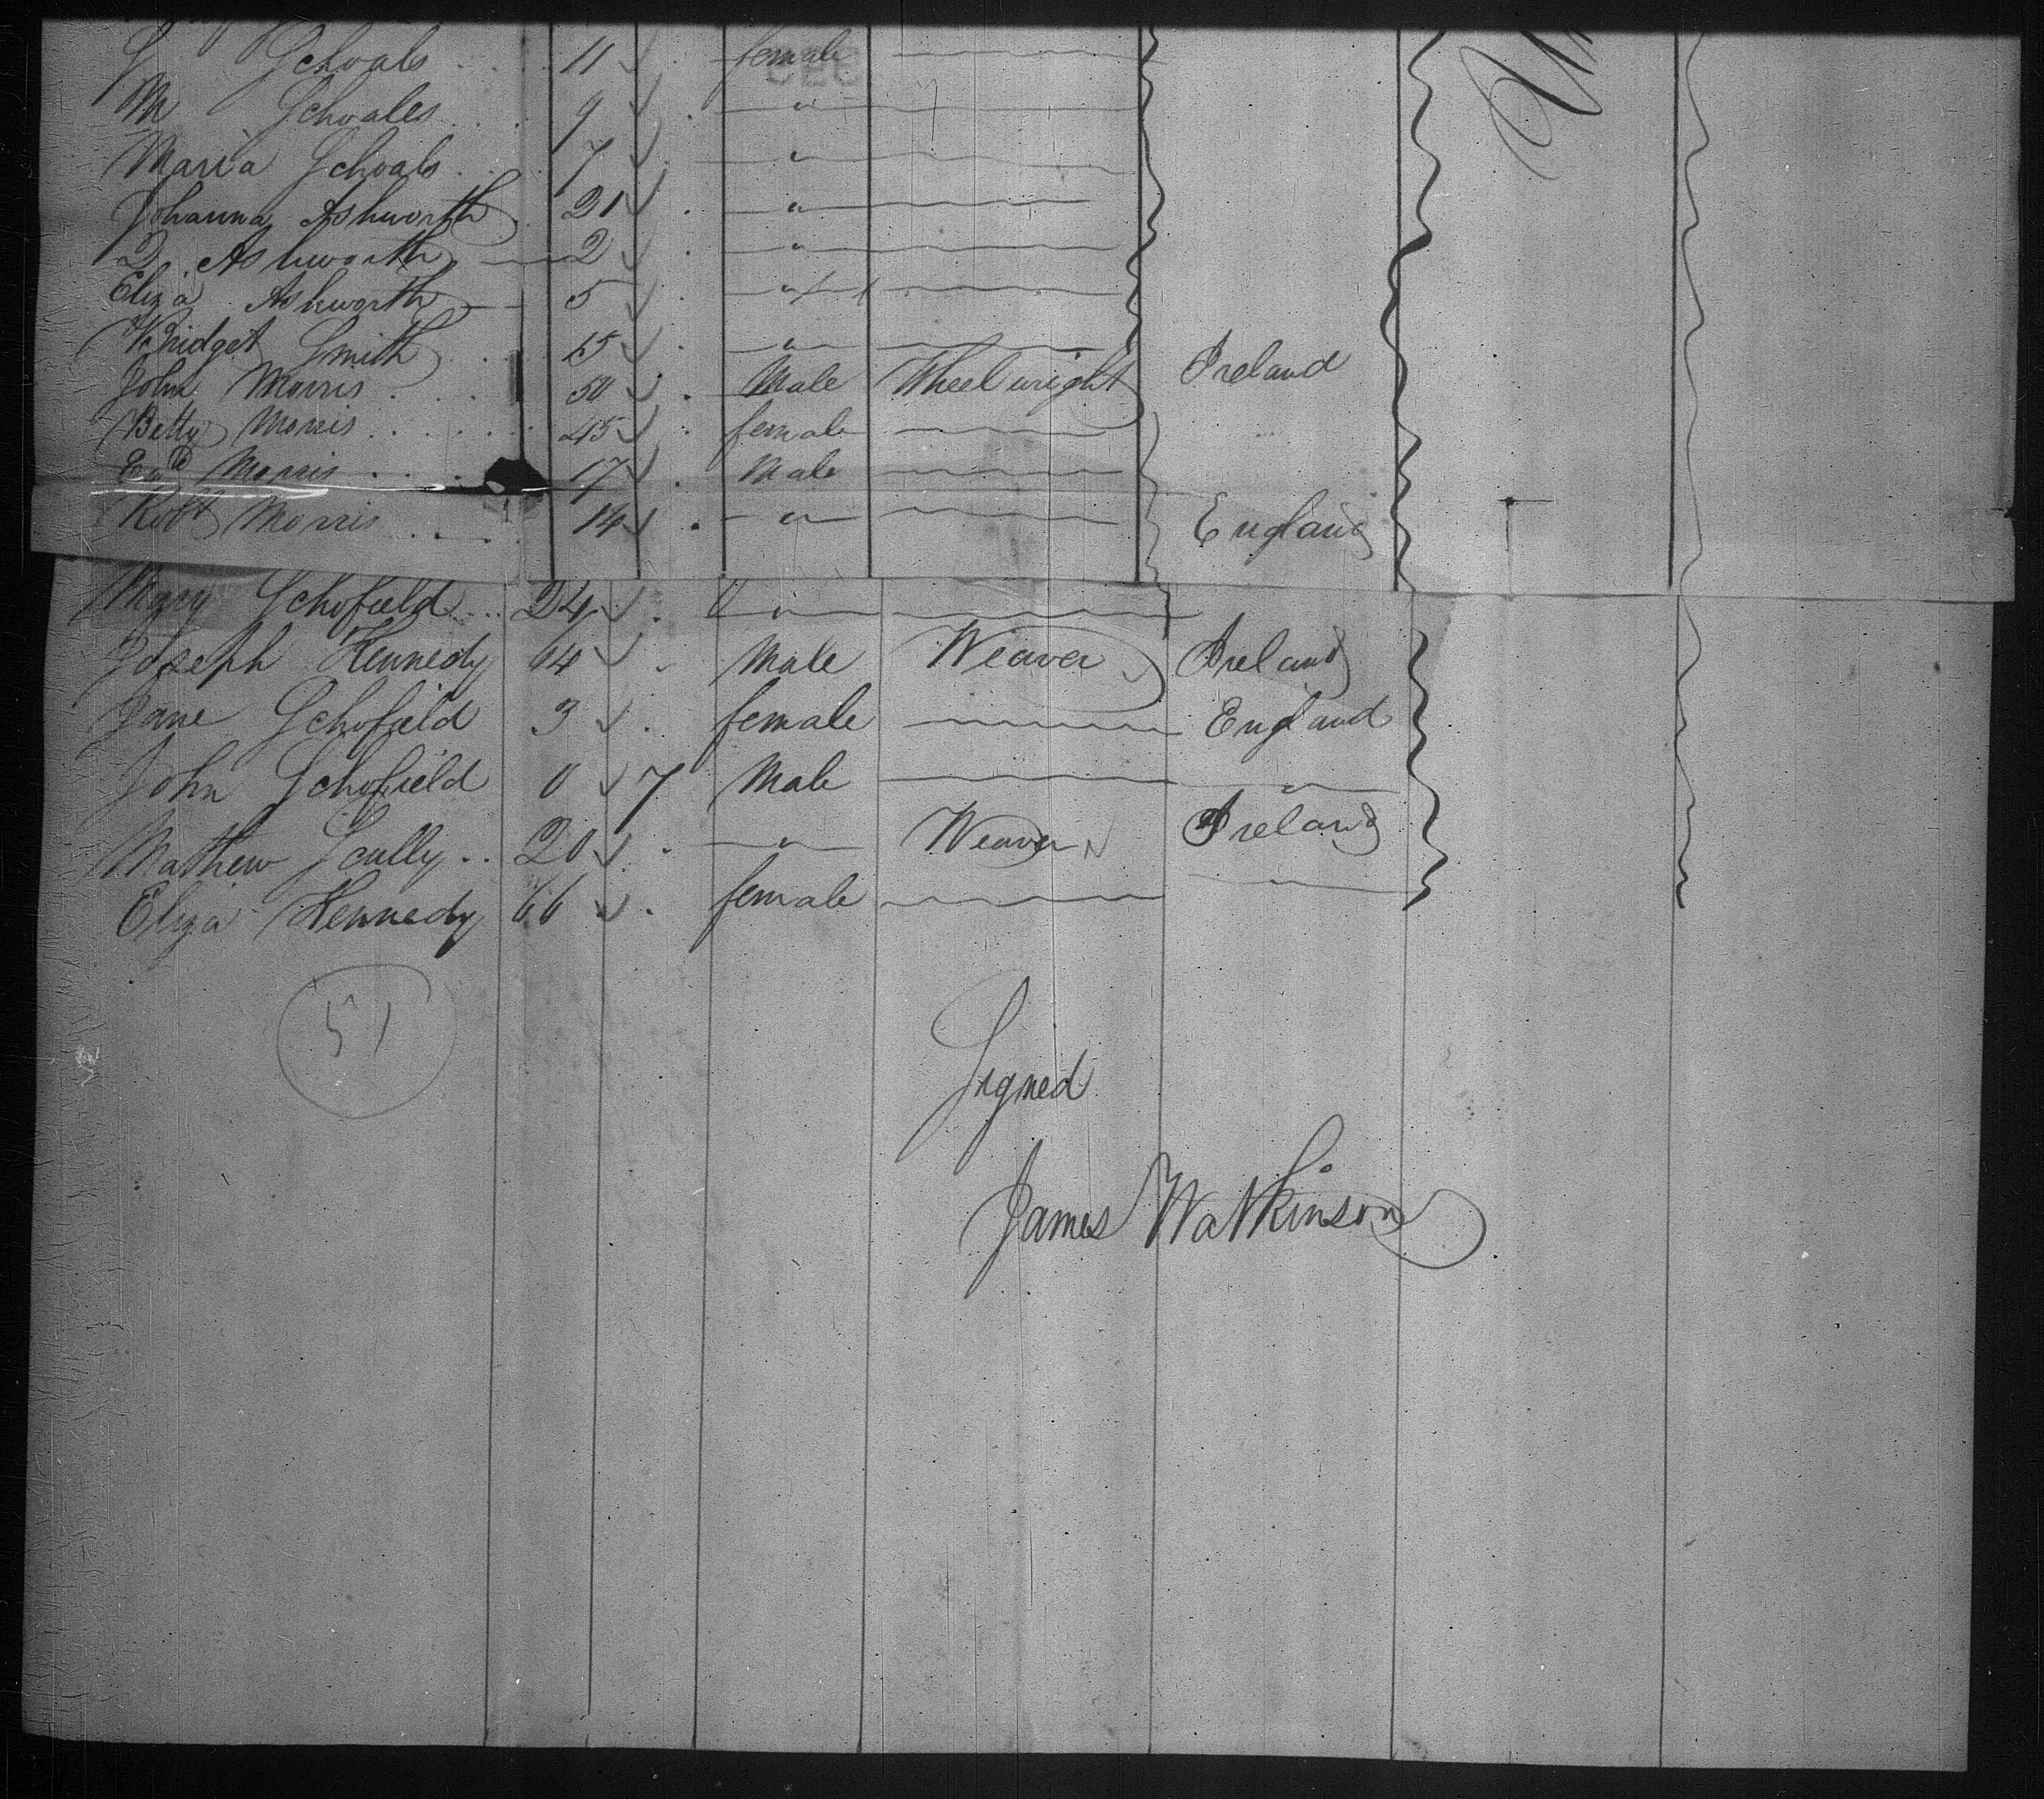 Schoals 11 female
M Schoales 9 "
Maria Schoals 7 "
Johanna Ashworth 21 "
Ashworth 2 "
Eliza Ashworth 5 "
Bridget Smith "
John Morris 50 Male Wheelwright Ireland
Betty Morris 45 female
Morris 17 Male
Robt Morris 14 " England
Mary Schofield 24 "
Joseph Kennedy 64 Male Weaver Ireland
Jane Schofield 3 female England
John Schofield 0 7 Male "
Mathew Scully 20 " Weaver Ireland
Eliza Kennedy 66 female "
51
Signed
James Watkinson